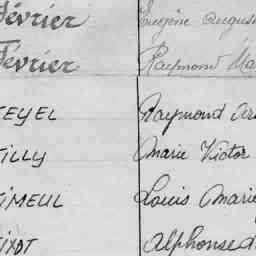 Février Eugène August
Février Raymond Ma
TEYEL Raymond Ar
TILLY Marie Victor
TIMEUL Louis Marie
TIXDT Alphonse